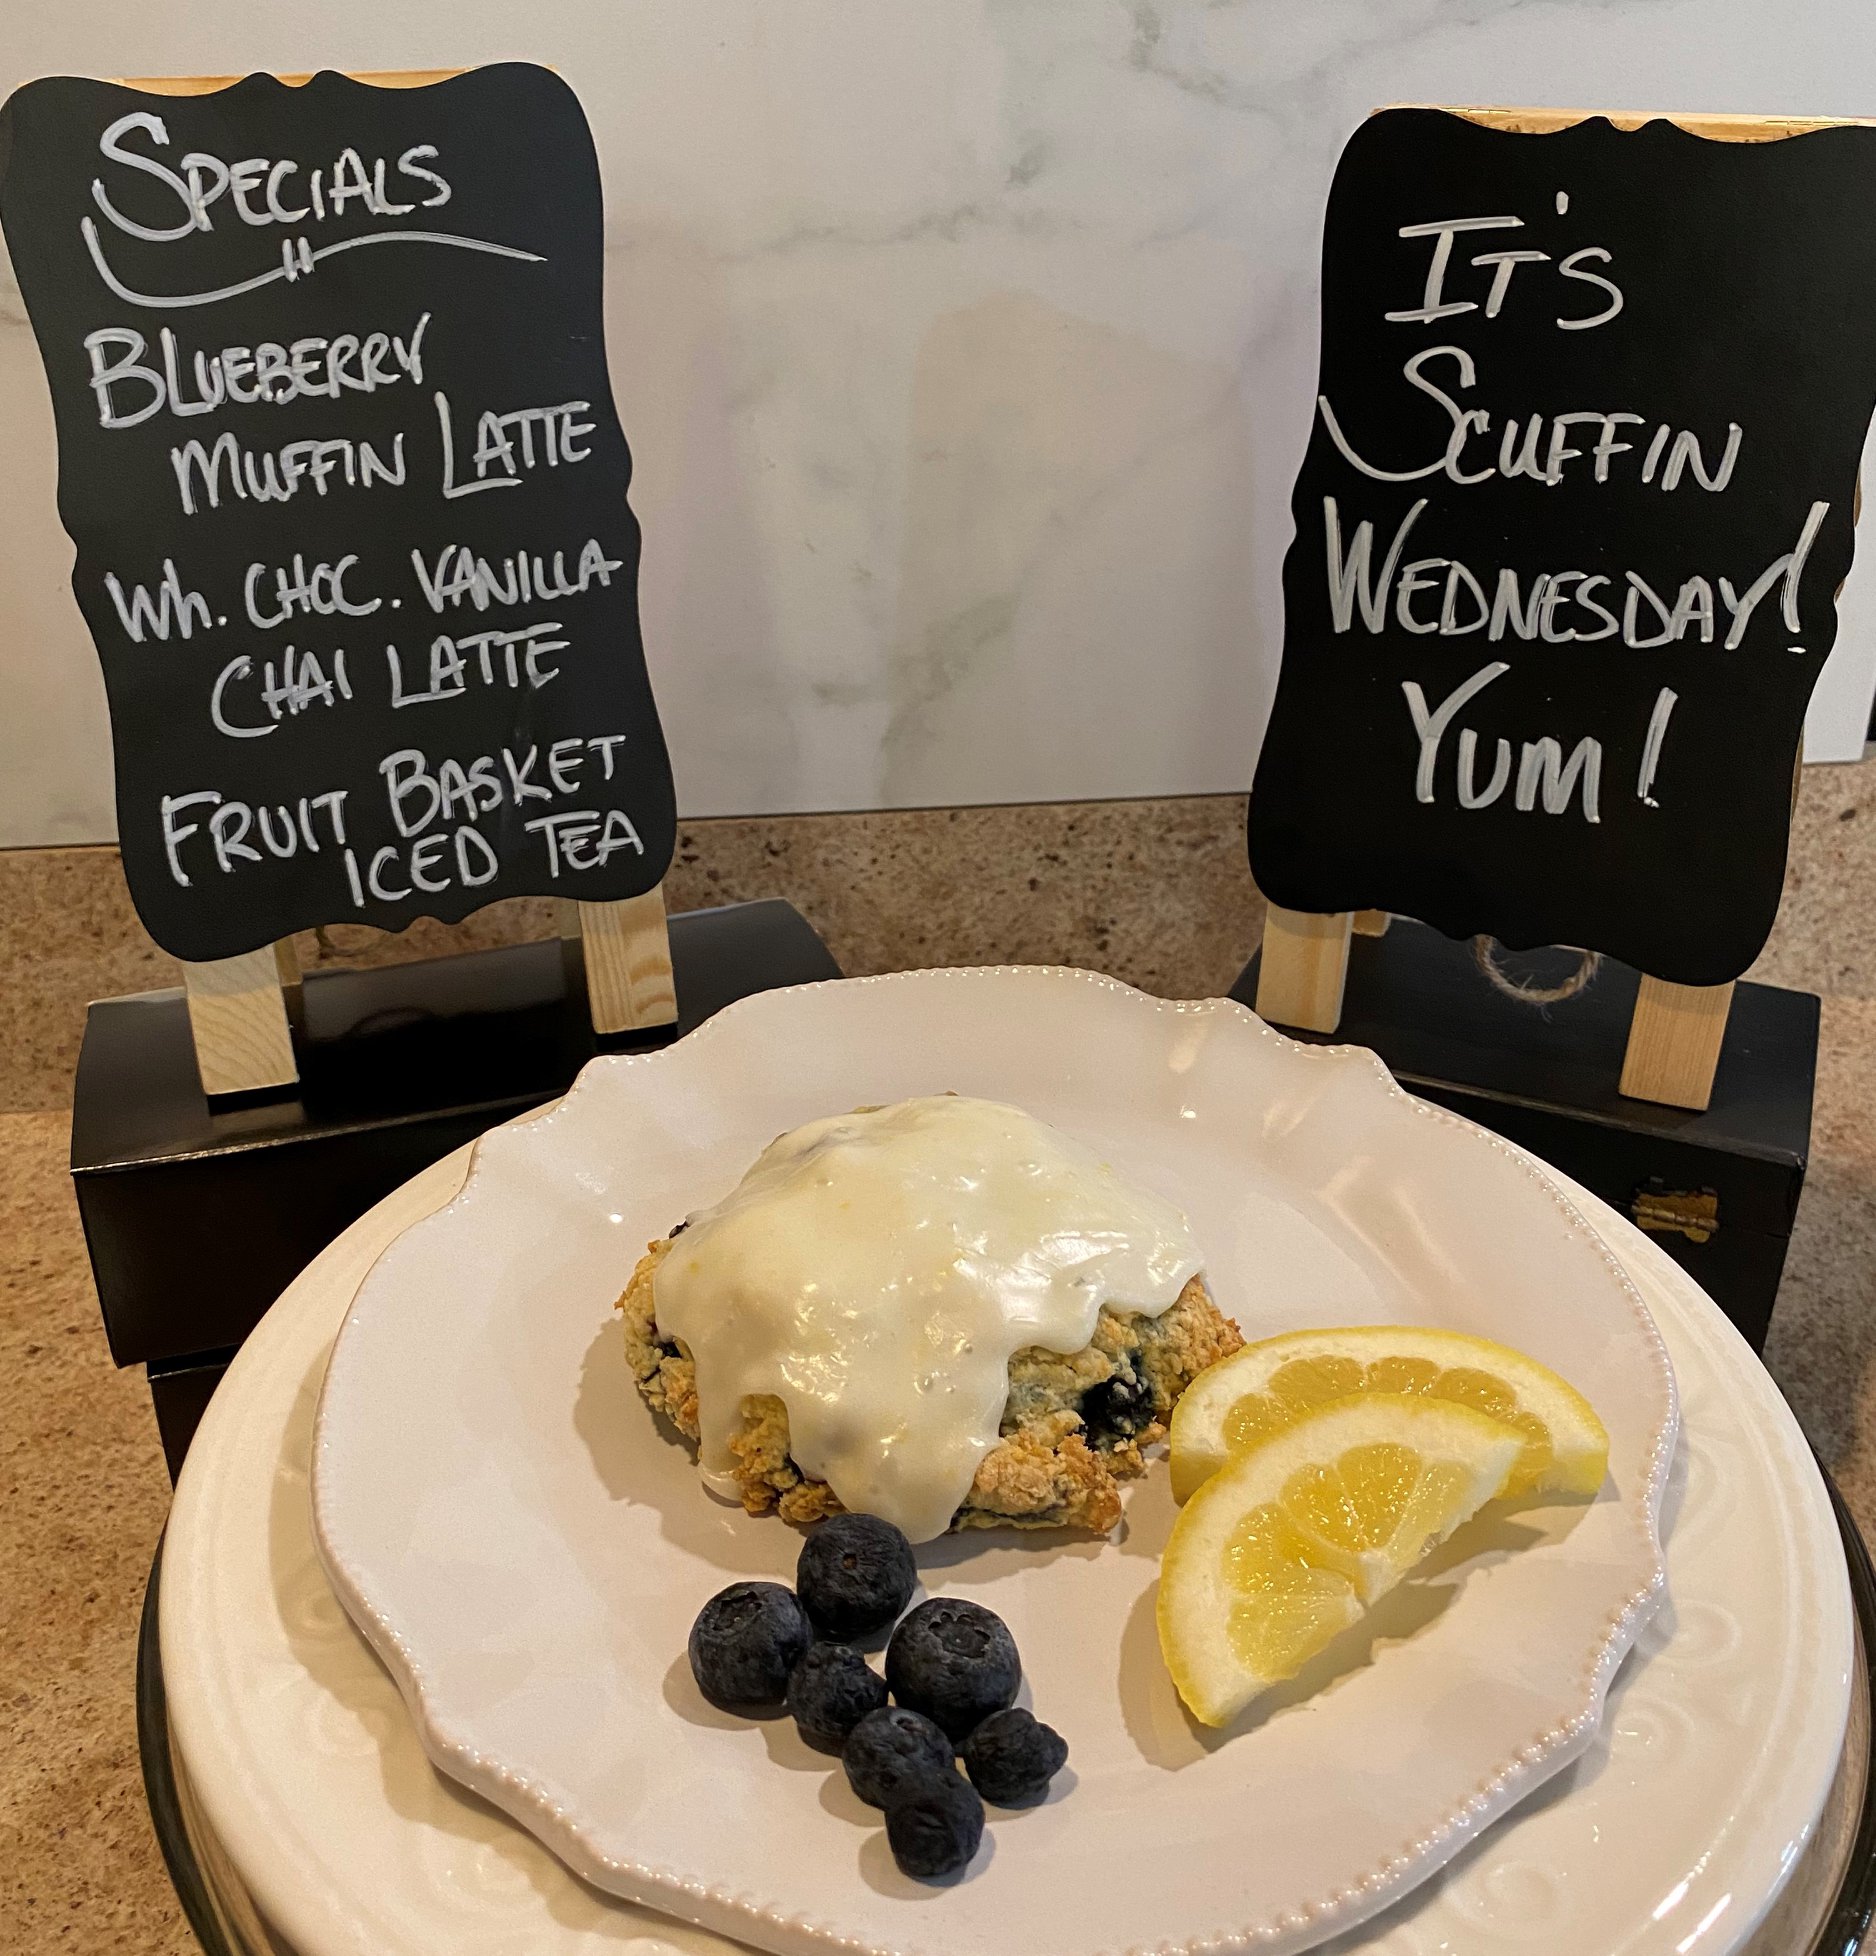 SPECIALS
BLUEBERRY
MUFFIN LATTE
Wh. CHOC. VANILLA
CHAI LATTE
FRUIT BASKET
ICED TEA
IT'S
SCUFFIN
WEDNESDAY!
YUM!